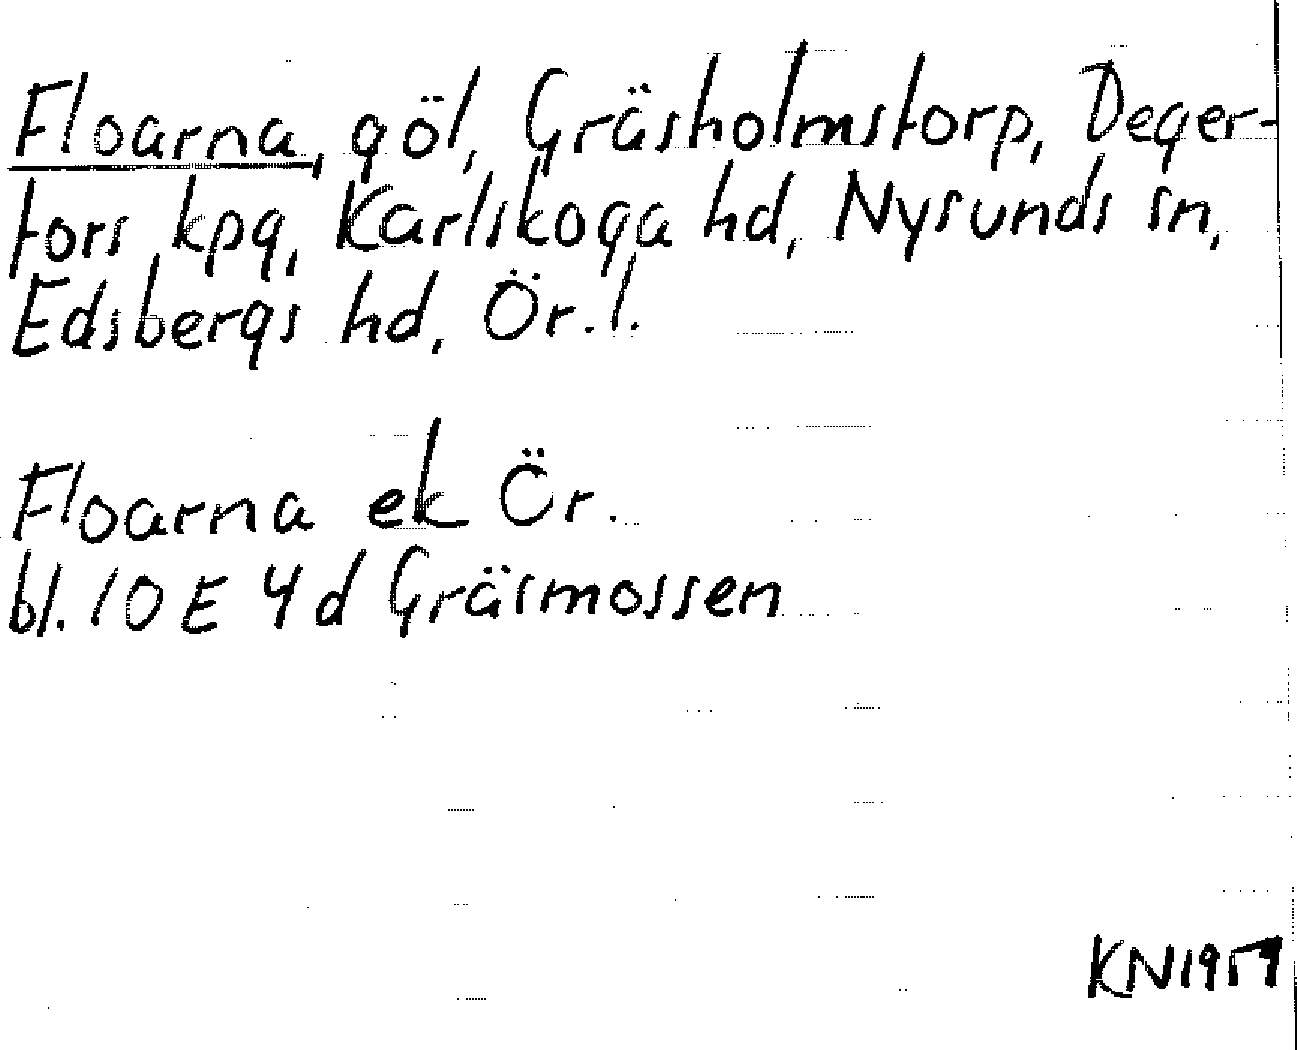 Floarna, göl, Gräsholmstorp, Deger-
fors kpg, Karlskoga hd, Nysunds sn,
Edsbergs hd, Ör. l.
Floarna ek Ör.
bl. 10 E 4 d Gräsmossen